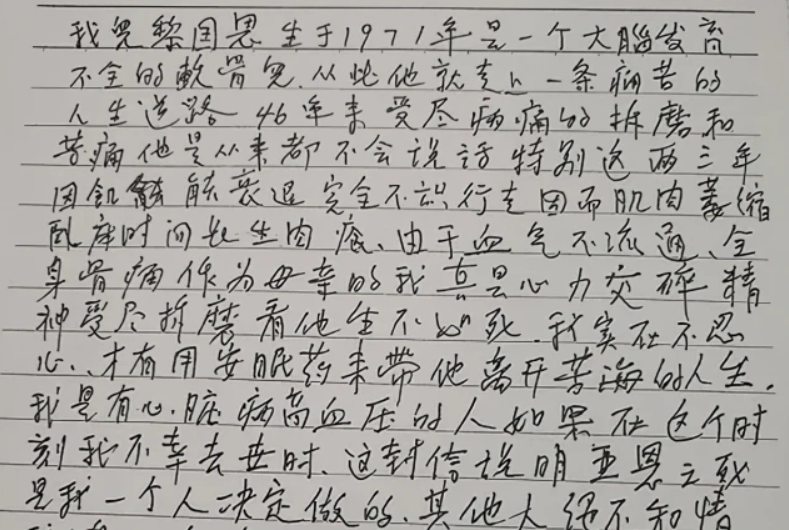 我児黎因恩生于1971年是一个大腦发育
不全的軟骨児.从此他就走上一条痛苦的
人生道路 46年来受尽病痛的拆磨和
苦痛他是从来都不会说話特别这两三年
因飢能衰退完全不识行走因而肌肉萎缩
臥床时间长生肉瘡、由于血气不流通、全
身骨痛作为母亲的我真是心力交碎精
神受尽拆磨看他生不如死.我实在不忍
心、才有用安眠药来带他离开苦海的人生.
我是有心脏病高血压的人如果在这个时
刻我不幸去世时、这封信说明亚恩之死
是我一个人决定做的、其他人不知情